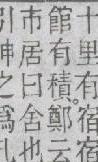 十里有宿宿
館有積鄭云
市居曰舍也
引伸之爲凡